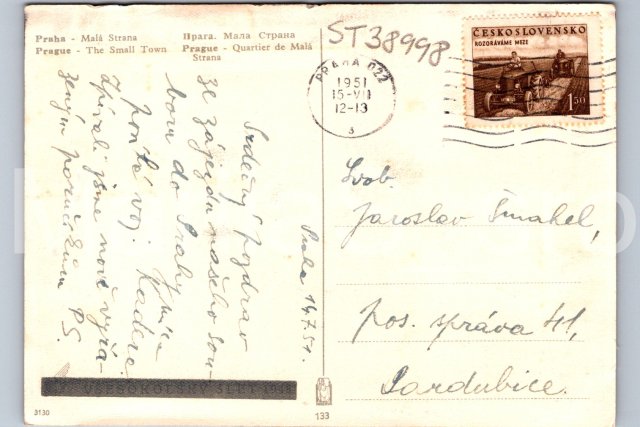 Praha - Malá Strana
Prague - The Small Town
Прага. Мала Страна
Prague - Quartier de Malá
Strana
ST38998
ČESKOSLOVENSKO
ROZORÁVÁME MEZE
1,50
PRAHA 022
1951
15-VII
12-13
3
Praha 14.7.51.
Srdečný pozdrav
ze zájezdu našeho sou-
boru do Prahy
posílá voj. Kadera
Zpívali jsme nově vyřa-
zeným poručíkům PS.
Svob.
Jaroslav Šmahel,
pos. správa 41,
Pardubice.
3130
133